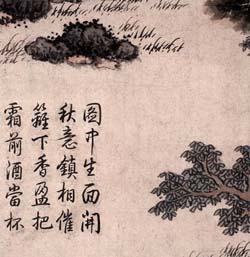 圖中生面開
秋意鎮相催
籬下香盈把
霜前酒當杯